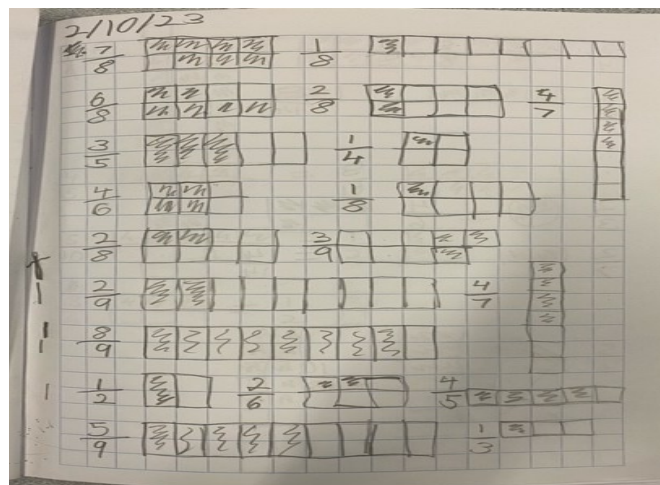 2/10/23
7/8 1/8
6/8 2/8 4/7
3/5 1/4
4/6 1/8
2/8 3/9
2/9 4/7
8/9
1/2 2/6 4/5
5/9 1/3